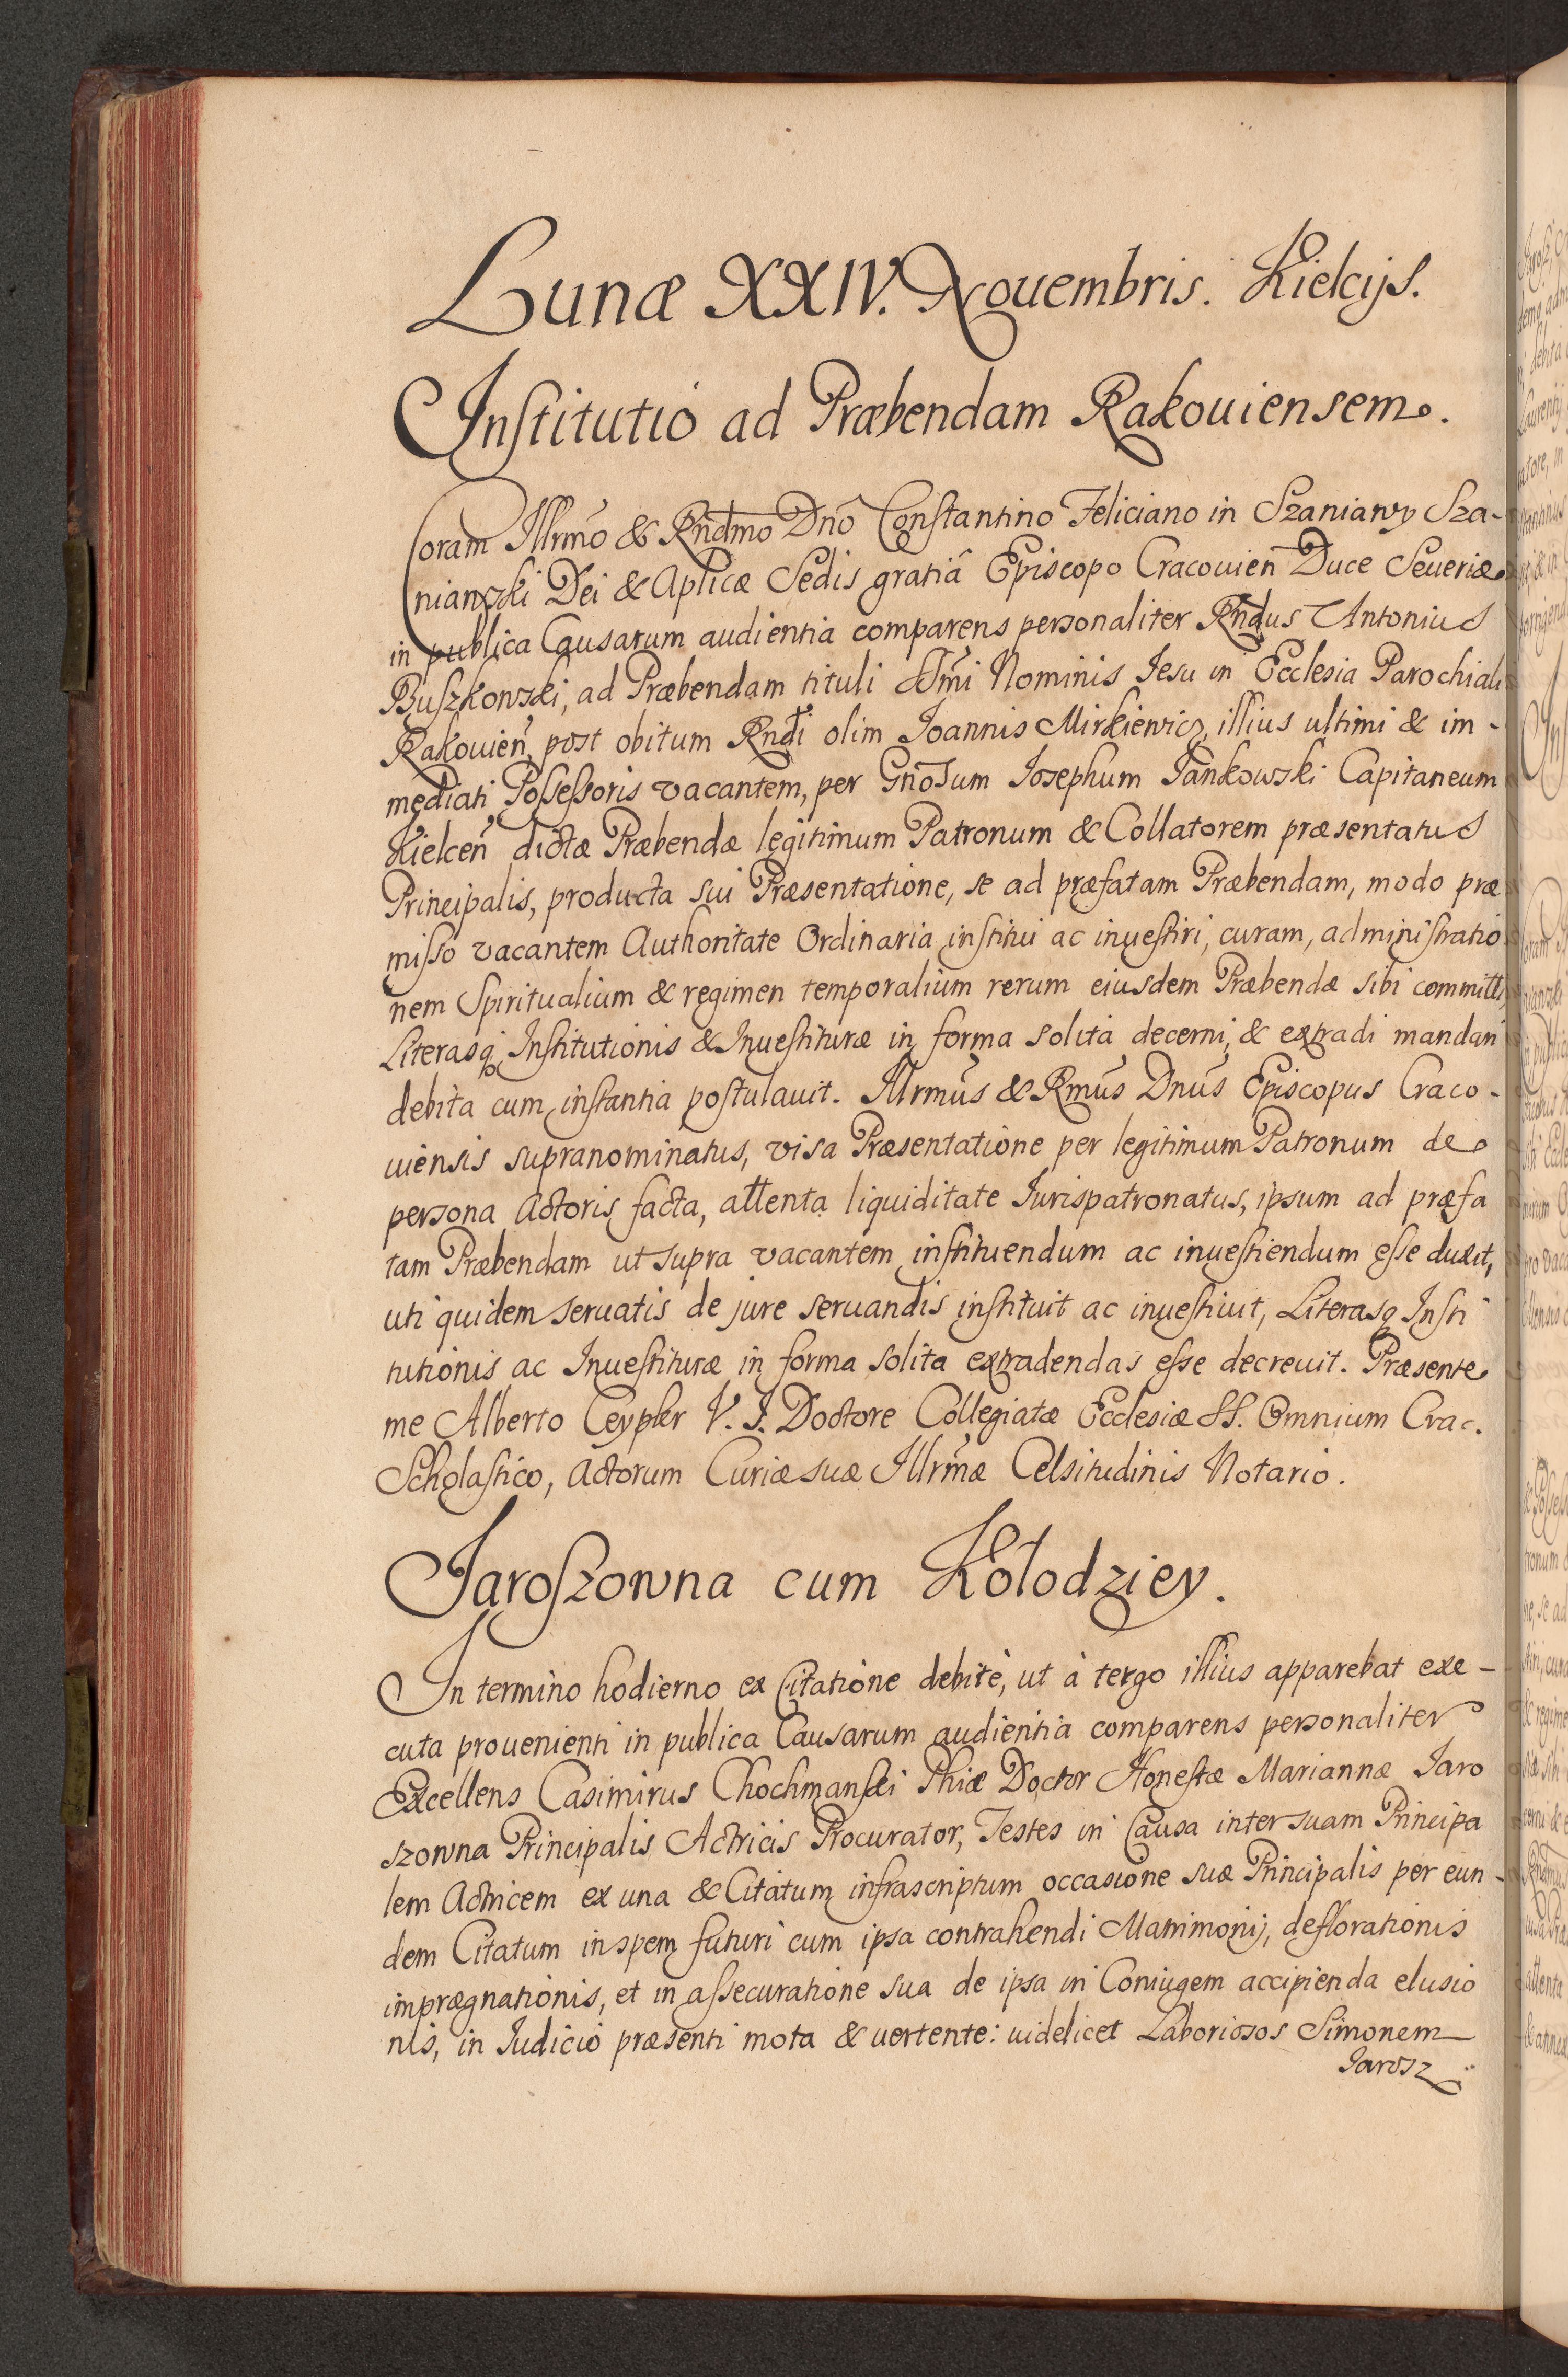 Lunæ XXIV. Nouembris. Kielcijs.
Institutio ad Præbendam Rakouiensem.
Coram Illrmo & Rndmo Dno Constantino Feliciano in Szaniawy Sza-
niawski Dei & Aplicæ Sedis gratiâ Episcopo Cracouien Duce Seueriæ
in publica Causarum audientia comparens personaliter Rndus Antonius
Buszkowski, ad Præbendam tituli SSmi Nominis Iesu in Ecclesia Parochiali
Rakouien, post obitum Rndi olim Joannis Mirkiewicz, illius ultimi & im-
mediati Possessoris vacantem, per Gnosum Josephum Jankowski Capitaneum
Kielcen dictæ Præbendæ legitimum Patronum & Collatorem præsentatus
Principalis, producta sui Præsentatione, se ad præfatam Præbendam, modo præ
misso vacantem Authoritate Ordinaria institui ac inuestiri, curam, administratio
nem Spiritualium & regimen temporalium rerum eiusdem Præbendæ sibi committi,
Literasq Institutionis & Inuestituræ in forma solita decerni, & extradi mandari
debita cum instantia postulauit. Illrmus & Rmus Dnus Episcopus Craco-
uiensis supranominatus, visa Præsentatione per legitimum Patronum de
persona Actoris facta, attenta liquiditate Jurispatronatus, ipsum ad præfa
tam Præbendam ut supra vacantem instituendum ac inuestiendum esse duxit,
uti quidem seruatis de jure seruandis instituit ac inuestiuit, Literasq Insti
tutionis ac Inuestituræ in forma solita extradendas esse decreuit. Præsente
me Alberto Ceypler V. J. Doctore Collegiatæ Ecclesiæ SS. Omnium Crac.
Scholastico, Actorum Curiæ suæ Illrmæ Celsitudinis Notario.
Jaroszowna cum Kołodziey.
In termino hodierno ex Citatione debitè, ut à tergo illius apparebat exe-
cuta prouenienti in publica Causarum audientia comparens personaliter
Excellens Casimirus Chochmanski Phiæ Doctor Honestæ Mariannæ Jaro
szowna Principalis Actricis Procurator, Testes in Causa inter suam Principa
lem Actricem ex una & Citatum infrascriptum occasione suæ Principalis per eun-
dem Citatum in spem futuri cum ipsa contrahendi Matrimonij, deflorationis
imprægnationis, et in assecuratione sua de ipsa in Coniugem accipienda elusio
nis, in Judicio præsenti mota & uertente: uidelicet Laboriosos Simonem
Jarosz